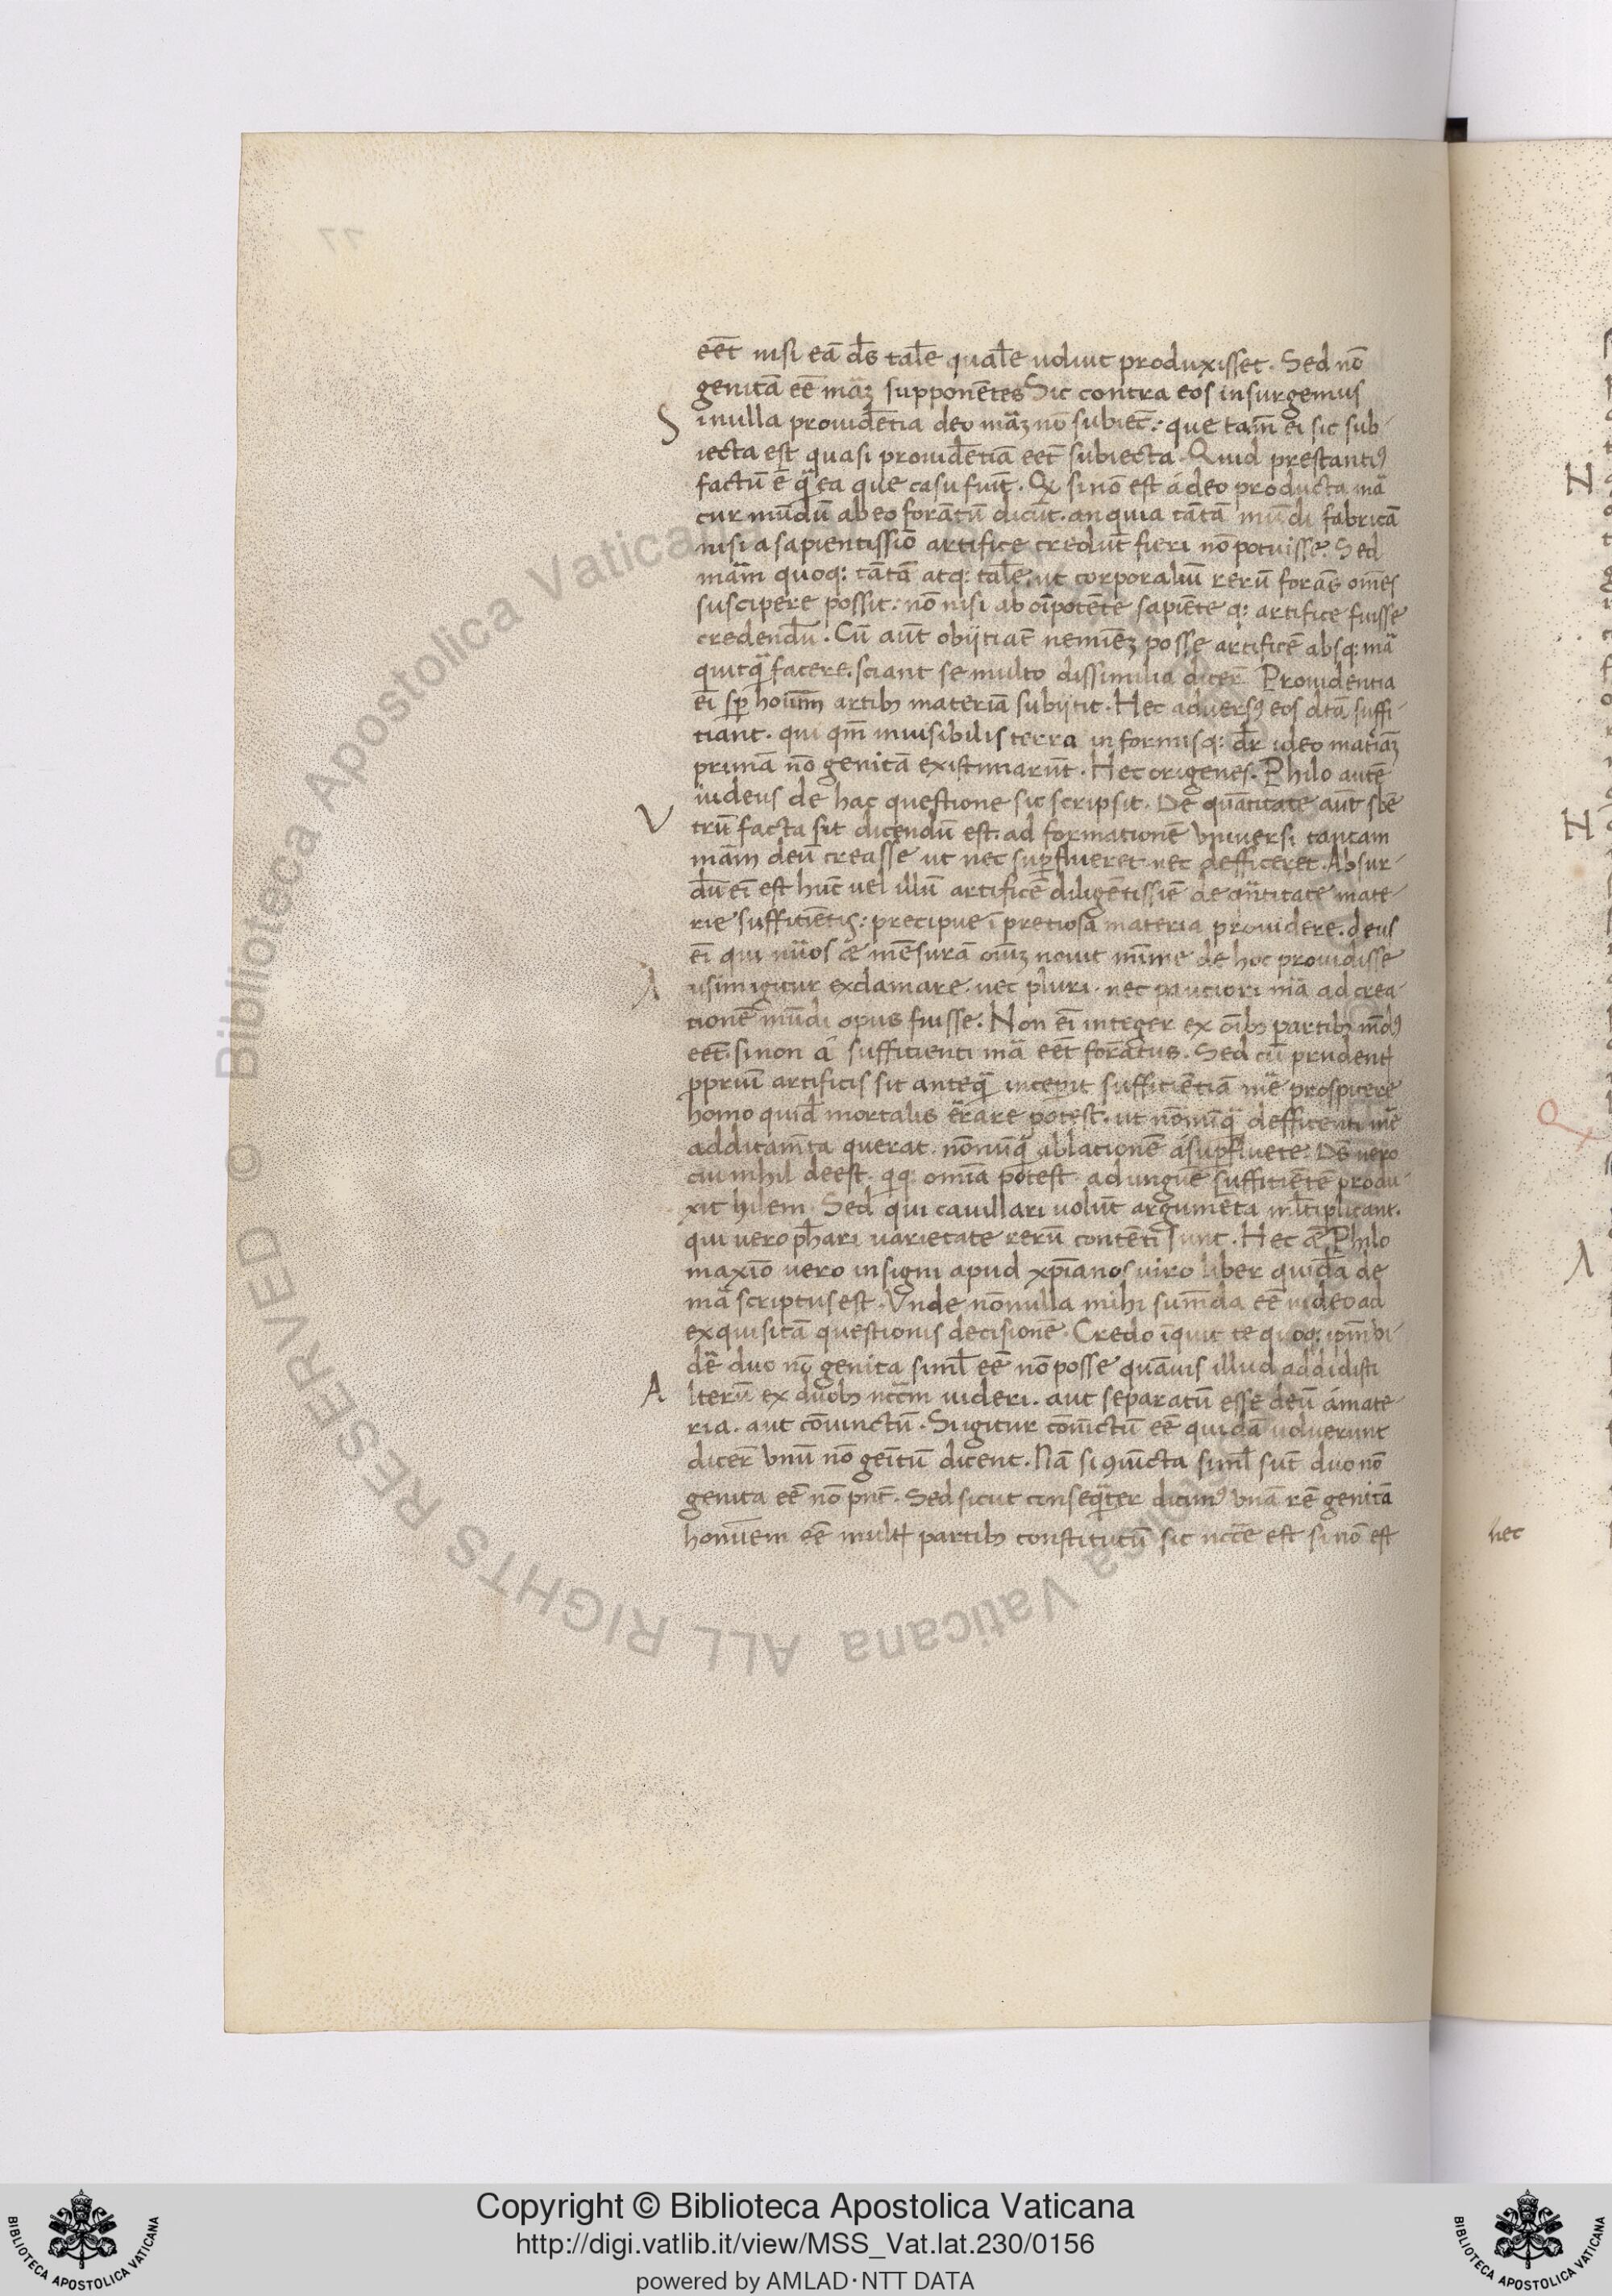 eēt nisi eā d̄s tal̄e qual̄e voluit produxisset. Sed nō
genitā eē māʒ supponētes Sic contra eos insurgemus
S i nulla provid̄etia deo māʒ nō subiec̄: que tam̄ ei sic sub-
iecta est quasi providētiā eēt subiecta. Quid prestantiꝰ
factū ē q̄ ea que casu fuīt. si nō est á deo producta mā
cur mūdū ab eo forātū dicūt. an quia tātā mūdi fabricā
nisi a sapientissīo artifice credūt fieri nō potuisse. Sed
mām quoq: tātā atq: tal̄e. ut corporaliū rerū forās oīnes
suscipere possit: nō nisi ab oīpotēte sapiēte q: artifice fuisse
credendū. Cū aūt obijtiāt nemiēʒ posse artificē absq: mā
quicq̄ facere. sciant se multo dissimilia dicer̄ Providentia
eī sp̄ hoīum artibꝫ materiā subijcit. Hec adversꝰ eos dtā suffi-
tiant. qui qm̄ invisibilis terra informisq: dr̄ ideo matiāʒ
primā nō genitā existimarūt. Hec origenes. Philo autē
iudeus de hac questione sic scripsit. De quātitate aūt sbē
V trū facta sit dicendū est. ad formationē universi tantam
mām deū creasse ut nec suꝑflueret nec defficeret. Absur-
dū eī est hūc vel illū artificē diligētissīe de q̄ntitate mate-
rie suffitiētis: precipue ī pretiosa materia providere. deus
eī qui nūos & mēsurā oīuʒ novit mīme de hoc providisse
A usim igitur exclamare. nec pluri. nec pautiori mā ad crea-
tionē mūdi opus fuisse. Non eī integer ex oībꝫ partibꝫ mūdꝰ
eēt. si non á suffitienti mā eēt forātus. Sed cū prudent
ꝓpriū artificis sit anteq̄ incepit suffitiētiā mē prospicere
homo quid̄ mortalis errare potest. ut nōnūq̄ defficenti mē
additam̄ta querat. nōnūq̄ ablationē á suꝑfluete. D̄s vero
cui nihil deest. qiq: omīa potest. ad unguē suffitiētē produ-
xit hilem. Sed qui cavillari volūt argumēta ml̄tiplicant.
qui vero ph̄ari varietate rerū contēti sunt. Hec & Philo
maxīo vero insigni apud xp̄ianos viro liber quidā de
mā scriptus est. Unde nōnulla mihi sumēda eē video ad
exquisitā questionis decisionē. Credo īquit te quoq: ipm̄ vi-
dē duo nō genita siml̄ eē nō posse quāvis illud addidisti
A lterū ex duobꝫ nccm̄ videri. aut separatū esse deū á mate-
ria. aut cōiunctū. Si igitur cōiūctū eē quidā voluerunt
dicer̄ unū nō genītū dicent. Nā si ꝯiūcta siml̄ sūt duo nō
genita eē nō pn̄t. Sed sicut consequēter dicimꝰ unā rē genitā
hominem eē mult partibꝫ constitutū sic ncce est si nō est
hec
Copyright © Biblioteca Apostolica Vaticana
http://digi.vatlib.it/view/MSS_Vat.lat.230/0156
powered by AMLAD·NTT DATA